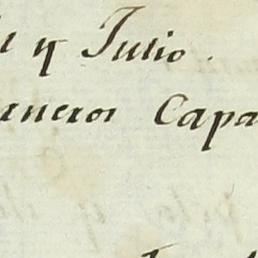 y Julio.
aneros Capa